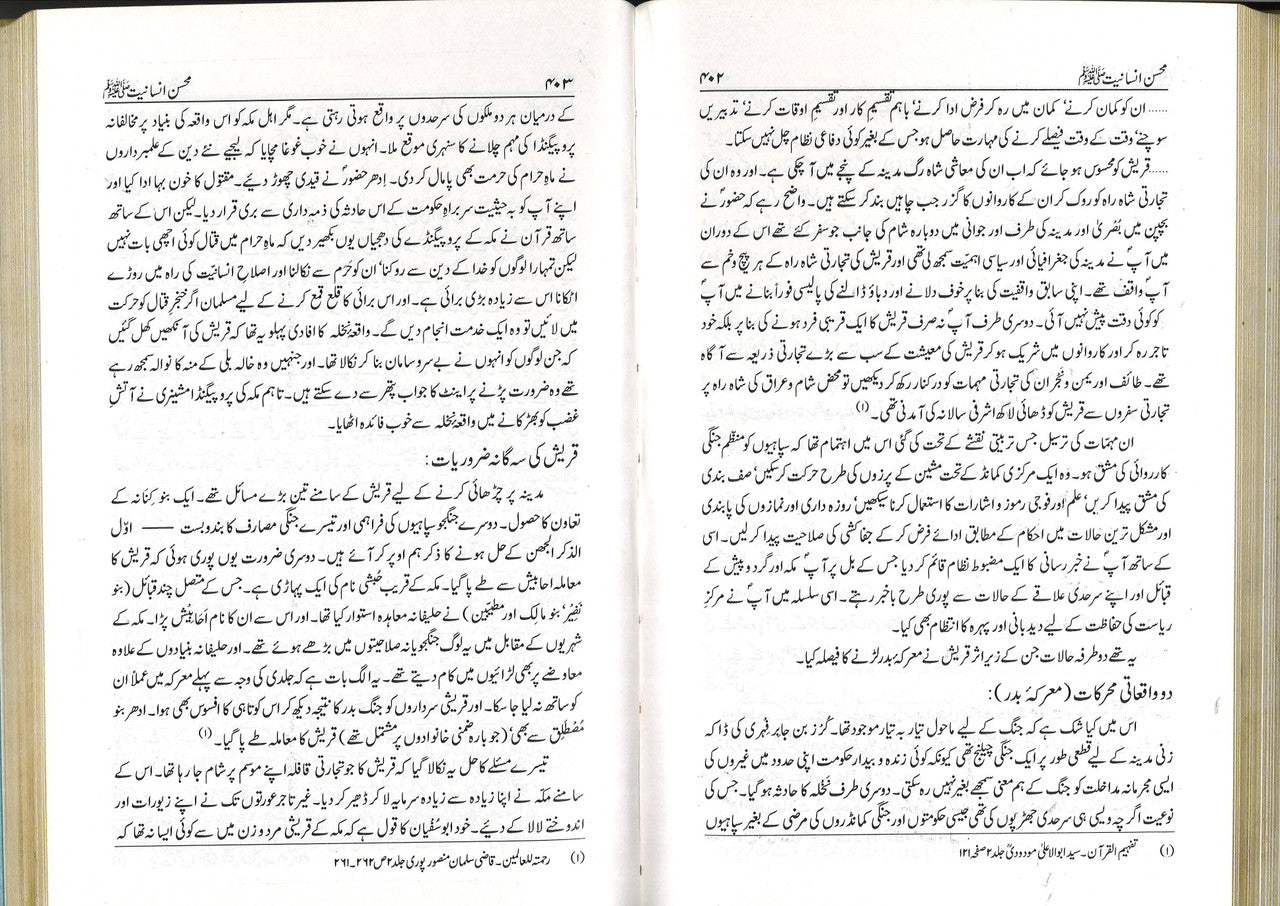 محسن انسانیت ﷺ
۴۰۲
...... ان کو کمان کرنے‘ کمان میں رہ کر فرض ادا کرنے‘ باہم تقسیمِ کار اور تقسیمِ اوقات کرنے‘ تدبیریں
سوچنے‘ وقت کے وقت فیصلے کرنے کی مہارت حاصل ہو جس کے بغیر کوئی دفاعی نظام چل نہیں سکتا۔
...... قریش کو محسوس ہو جائے کہ اب ان کی معاشی شاہ رگ مدینہ کے پنجے میں آ چکی ہے۔ اور وہ ان کی
تجارتی شاہ راہ کو روک کر ان کے کاروانوں کا گزر جب چاہیں بند کر سکتے ہیں۔ واضح رہے کہ حضورؐ نے
بچپن میں بُصریٰ اور مدینہ کی طرف اور جوانی میں دوبارہ شام کی جانب جو سفر کئے تھے اس کے دوران
میں آپؐ نے مدینہ کی جغرافیائی اور سیاسی اہمیّت سمجھ لی تھی اور قریش کی تجارتی شاہ راہ کے ہر پیچ و خم سے
آپؐ واقف تھے۔ اپنی سابق واقفیت کی بنا پر خوف دلانے اور دباؤ ڈالنے کی پالیسی فوراً بنانے میں آپؐ
کو کوئی دقت پیش نہیں آئی۔ دوسری طرف آپؐ نہ صرف قریش کا ایک قریبی فرد ہونے کی بنا پر بلکہ خود
تاجر رہ کر اور کاروانوں میں شریک ہو کر قریش کی معیشت کے سب سے بڑے تجارتی ذریعہ سے آگاہ
تھے۔ طائف اور یمن و نجران کی تجارتی مہمات کو درکنار رکھ کر دیکھیں تو محض شام و عراق کی شاہ راہ پر
تجارتی سفروں سے قریش کو ڈھائی لاکھ اشرفی سالانہ کی آمدنی تھی۔(۱)
ان مہمّات کی ترسیل جس تربیتی نقشے کے تحت کی گئی اس میں اہتمام تھا کہ سپاہیوں کو منظّم جنگی
کارروائی کی مشق ہو۔ وہ ایک مرکزی کمانڈ کے تحت مشین کے پرزوں کی طرح حرکت کر سکیں‘ صف بندی
کی مشق پیدا کریں‘ علم اور فوجی رموز و اشارات کا استعمال کرنا سیکھیں‘ روزہ داری اور نمازوں کی پابندی
اور مشکل ترین حالات میں احکام کے مطابق ادائے فرض کر کے جفاکشی کی صلاحیت پیدا کر لیں۔ اسی
کے ساتھ آپؐ نے خبر رسانی کا ایک مضبوط نظام قائم کر دیا جس کے بل پر آپؐ مکہ اور گرد و پیش کے
قبائل اور اپنے سرحدی علاقے کے حالات سے پوری طرح باخبر رہتے۔ اسی سلسلہ میں آپؐ نے مرکزِ
ریاست کی حفاظت کے لیے دیدبانی اور پہرہ کا انتظام بھی کیا۔
یہ تھے دو طرفہ حالات جن کے زیرِ اثر قریش نے معرکۂ بدر لڑنے کا فیصلہ کیا۔
دو واقعاتی محرکات (معرکۂ بدر):
اس میں کیا شک ہے کہ جنگ کے لیے ماحول تیار بہ تیار موجود تھا۔ کُرز بن جابر فِہری کی ڈاکہ
زنی مدینہ کے لیے قطعی طور پر ایک جنگی چیلنج تھی کیونکہ کوئی زندہ و بیدار حکومت اپنی حدود میں غیروں کی
ایسی مجرمانہ مداخلت کو جنگ کے ہم معنی سمجھے بغیر نہیں رہ سکتی۔ دوسری طرف نخلہ کا حادثہ ہو گیا۔ جس کی
نوعیت اگرچہ ویسی ہی سرحدی جھڑپوں کی تھی جیسی حکومتوں اور جنگی کمانڈروں کی مرضی کے بغیر سپاہیوں
(۱) تفہیم القرآن۔ سید ابوالاعلیٰ مودودیؒ جلد ۲ صفحہ ۱۲۱
محسن انسانیت ﷺ
۴۰۳
کے درمیان ہر دو ملکوں کی سرحدوں پر واقع ہوتی رہتی ہے۔ مگر اہل مکہ کو اس واقعہ کی بنیاد پر مخالفانہ
پروپیگنڈا کی مہم چلانے کا سنہری موقع ملا۔ انہوں نے خوب غوغا مچایا کہ لیجیے نئے دین کے علمبرداروں
نے ماہِ حرام کی حرمت بھی پامال کر دی۔ اِدھر حضورؐ نے قیدی چھوڑ دیئے۔ مقتول کا خون بہا ادا کیا اور
اپنے آپ کو بہ حیثیت سربراہِ حکومت کے اس حادثہ کی ذمہ داری سے بری قرار دیا۔ لیکن اس کے ساتھ
ساتھ قرآن نے مکہ کے پروپیگنڈے کی دھجیاں یوں بکھیر دیں کہ ماہِ حرام میں قتال کوئی اچھی بات نہیں
لیکن تمہارا لوگوں کو خدا کے دین سے روکنا‘ ان کو حَرَم سے نکالنا اور اصلاحِ انسانیّت کی راہ میں روڑے
اٹکانا اس سے زیادہ بڑی برائی ہے۔ اور اس برائی کا قلع قمع کرنے کے لیے مسلمان اگر خنجرِ قتال کو حرکت
میں لائیں تو وہ ایک خدمت انجام دیں گے۔ واقعۂ نخلہ کا افادی پہلو یہ تھا کہ قریش کی آنکھیں کھل گئیں
کہ جن لوگوں کو انہوں نے بے سر و سامان بنا کر نکالا تھا۔ اور جنہیں وہ خالہ بلی کے منہ کا نوالہ سمجھ رہے
تھے وہ ضرورت پڑنے پر اینٹ کا جواب پتھر سے دے سکتے ہیں۔ تاہم مکہ کی پروپیگنڈا مشینری نے آتشِ
غضب کو بھڑکانے میں واقعۂ نخلہ سے خوب فائدہ اٹھایا۔
قریش کی سہ گانہ ضروریات:
مدینہ پر چڑھائی کرنے کے لیے قریش کے سامنے تین بڑے مسائل تھے۔ ایک بنو کِنانہ کے
تعاون کا حصول۔ دوسرے جنگجو سپاہیوں کی فراہمی اور تیسرے جنگی مصارف کا بندوبست —— اوّل
الذکر الجھن کے حل ہونے کا ذکر ہم اوپر کر آئے ہیں۔ دوسری ضرورت یوں پوری ہوئی کہ قریش کا
معاملہ احابیش سے طے پا گیا۔ مکہ کے قریب حُبشی نام کی ایک پہاڑی ہے۔ جس کے متصل چند قبائل (بنو
نضِیر‘ بنو مالک اور مطیّبین) نے حلیفانہ معاہدہ استوار کیا تھا۔ اور اس سے ان کا نام اَحَابِیْش پڑا۔ مکہ کے
شہریوں کے مقابل میں یہ لوگ جنگجویانہ صلاحیتوں میں بڑھے ہوئے تھے۔ اور حلیفانہ بنیادوں کے علاوہ
معاوضے پر بھی لڑائیوں میں کام دیتے تھے۔ یہ الگ بات ہے کہ جلدی کی وجہ سے پہلے معرکہ میں عملاً ان
کو ساتھ نہ لیا جا سکا۔ اور قریشی سرداروں کو جنگ بدر کا نتیجہ دیکھ کر اس کوتاہی کا افسوس بھی ہوا۔ ادھر بنو
مُصْطَلِق سے بھی‘ (جو بارہ ضمنی خانوادوں پر مشتمل تھے) قریش کا معاملہ طے پا گیا۔(۱)
تیسرے مسئلے کا حل یہ نکالا گیا کہ قریش کا جو تجارتی قافلہ اپنے موسم پر شام جا رہا تھا۔ اس کے
سامنے مکّہ نے اپنا زیادہ سے زیادہ سرمایہ لا کر ڈھیر کر دیا۔ غیر تاجر عورتوں تک نے اپنے زیورات اور
اندوختے لا لا کے دیئے۔ خود ابو سُفیان کا قول ہے کہ مکہ کے قریشی مرد و زن میں سے کوئی ایسا نہ تھا کہ
(۱) رحمتہ للعالمین۔ قاضی سلمان منصور پوری جلد ۲ ص ۲۶۲۔۲۶۱